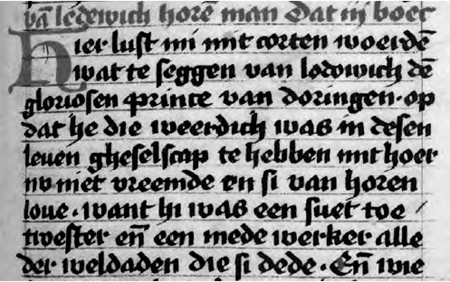 vā ledewich horē man Dat iij boec
Hier lust mi mit corten woerdē
wat te seggen van lodowich dē
gloriosen prince van doringen · op
dat he die weerdich was in desen
leuen gheselscap te hebben mit hoer
nv niet vreemde en si van horen
loue · want hi was een suet toe
tuester eñ een mede werker alle
der weldaden die si dede · Eñ wie